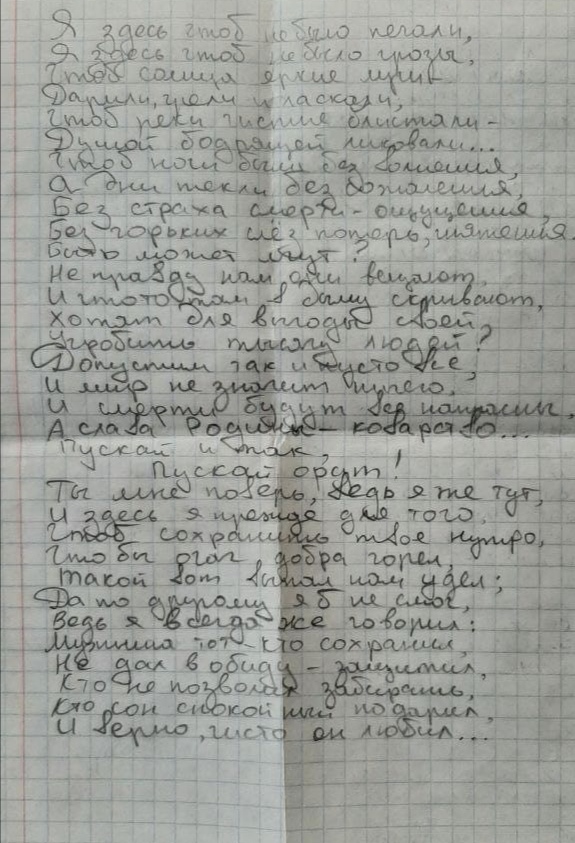 Я здесь чтоб не было печали,
Я здесь чтоб не было грозы,
Чтоб солнца яркие лучи
Дарили, грели и ласкали,
Чтоб реки чистые блистали -
Душой бодрящей ликовали...
Чтоб ночи были без волнения,
А дни текли без сожаления,
Без страха смерти - ощущения,
Без горьких слёз потерь, мятения.
Быть может лгут?
Не правду нам они вещают,
И что-то там в дыму скрывают,
Хотят для выгоды своей,
Угробить тысячи людей?
Допустим так и пусто всё,
И мир не значит ничего,
И смерти будут все напрасны,
А слава Родины - коварство...
Пускай и так,
Пускай орут!
Ты мне поверь, ведь я же тут,
И здесь я прежде для того,
Чтоб сохранить твое нутро,
Что бы очаг добра горел,
Такой вот выпал нам удел;
Да по другому я б не смог,
Ведь я всегда же говорил:
Мужчина тот - кто сохранил,
Не дал в обиду - защитил,
Кто не позволил забирать,
Кто сон спокойный подарил,
И верно, чисто он любил...